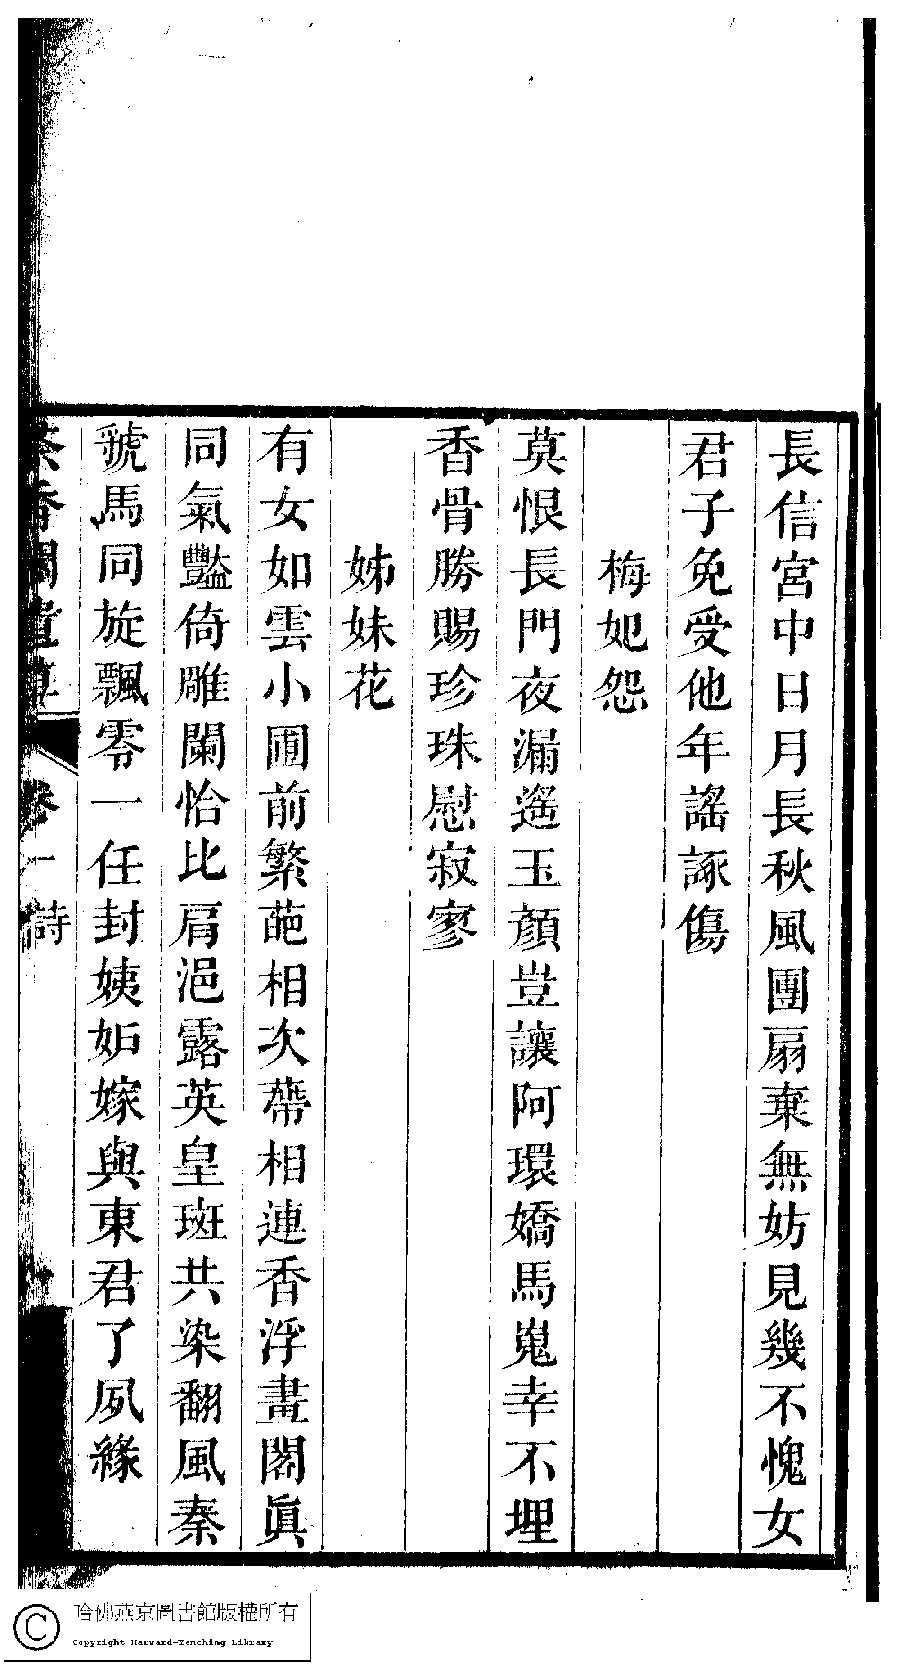 長信宮中日月長秋風團扇棄無妨見幾不愧女
君子免受他年謠諑傷
梅妃怨
莫恨長門夜漏遙玉顏豈讓阿環嬌馬嵬幸不埋
香骨勝賜珍珠慰寂寥
姊妹花
有女如雲小圃前繁葩相次蔕相連香浮畫閣眞
同氣豔倚雕闌恰比肩浥露英皇斑共染翻風秦
虢馬同旋飄零一任封姨妬嫁與東君了夙緣
茶香閣遺草 卷一 詩
哈佛燕京圖書館版權所有
Copyright Harvard-Yenching Library